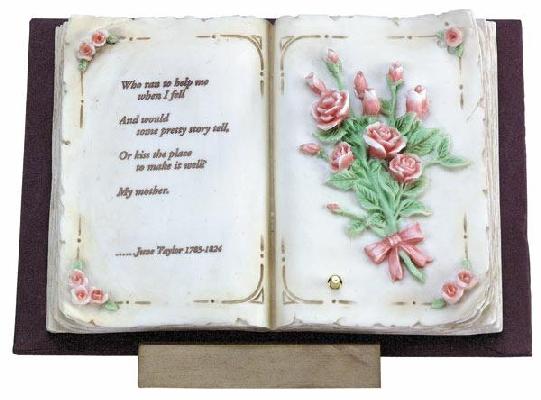 Who ran to help me
when I fell
And would
some pretty story tell,
Or kiss the place
to make it well?
My mother.
...... Jane Taylor 1783-1824